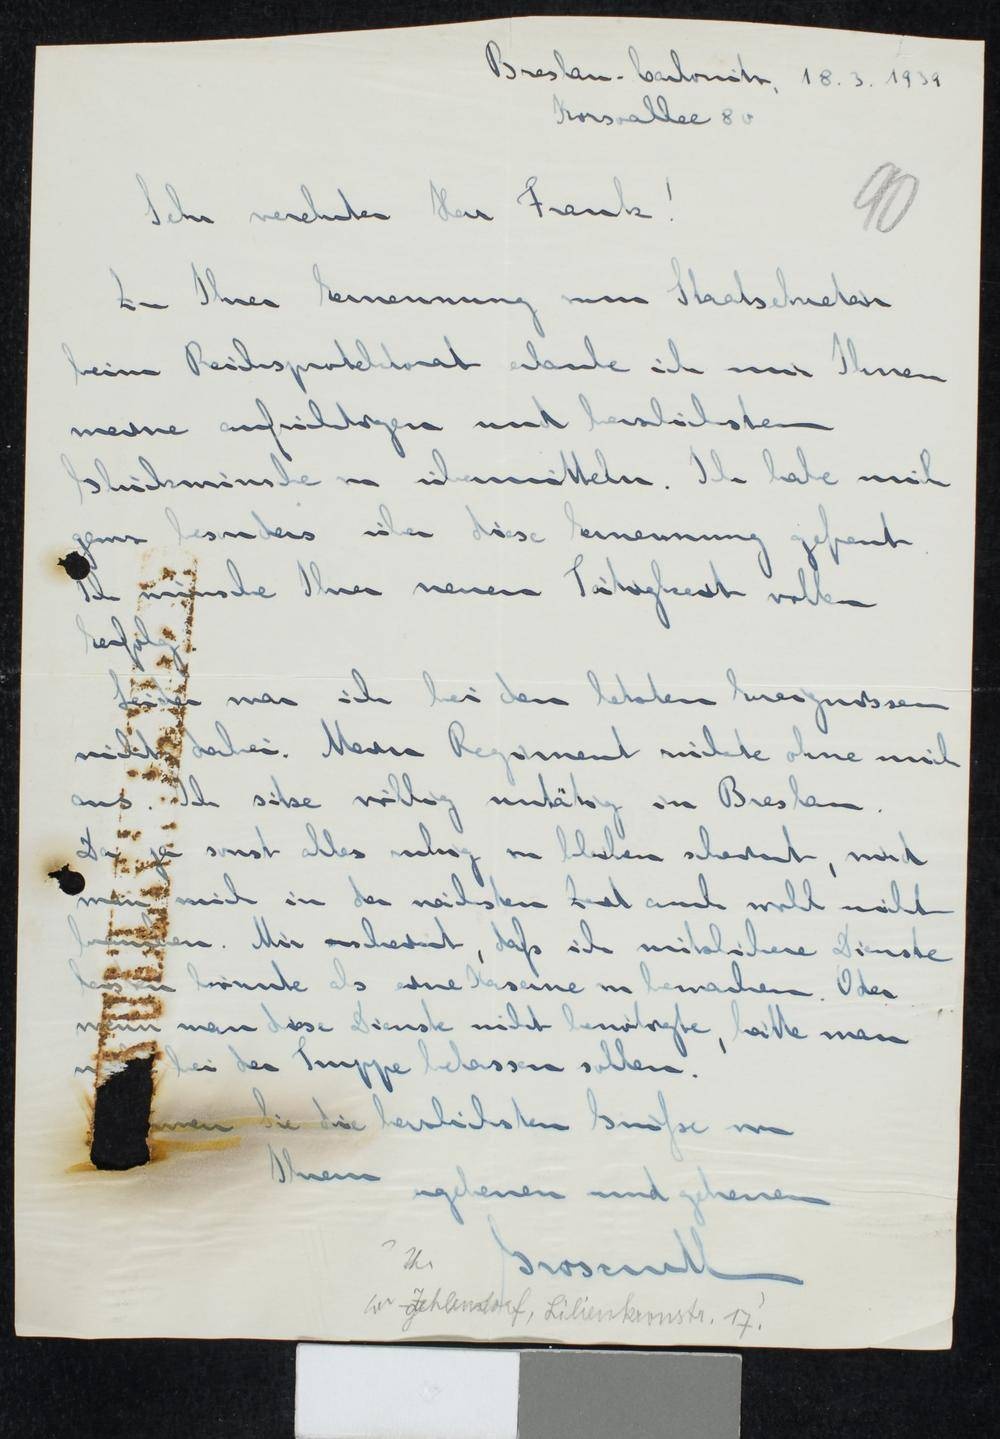 Breslau-Carlowitz, 18. 3. 1939
Korsoallee 80
90
Sehr verehrter Herr Frank!
Zu Ihrer Ernennung zum Staatssekretär
beim Reichsprotektorat erlaube ich mir Ihnen
meine aufrichtigen und herzlichsten
Glückwünsche zu übermitteln. Ich habe mich
ganz besonders über diese Ernennung gefreut.
Ich wünsche Ihrer neuen Tätigkeit vollen
Erfolg.
Leider war ich bei den letzten Ereignissen
nicht dabei. Mein Regiment rückte ohne mich
aus. Ich sitze völlig untätig in Breslau.
Da ja sonst alles ruhig zu bleiben scheint, wird
man mich in der nächsten Zeit auch wohl nicht
brauchen. Mir erscheint, daß ich nützlichere Dienste
leisten könnte als eine Kaserne zu bewachen. Oder
wenn man diese Dienste nicht benötigte, hätte man
bei der Truppe belassen sollen.
Sie die herzlichsten Grüße von
Ihrem
ergebenen und
? Ihr
Zehlendorf, Lilienkronstr. 17!